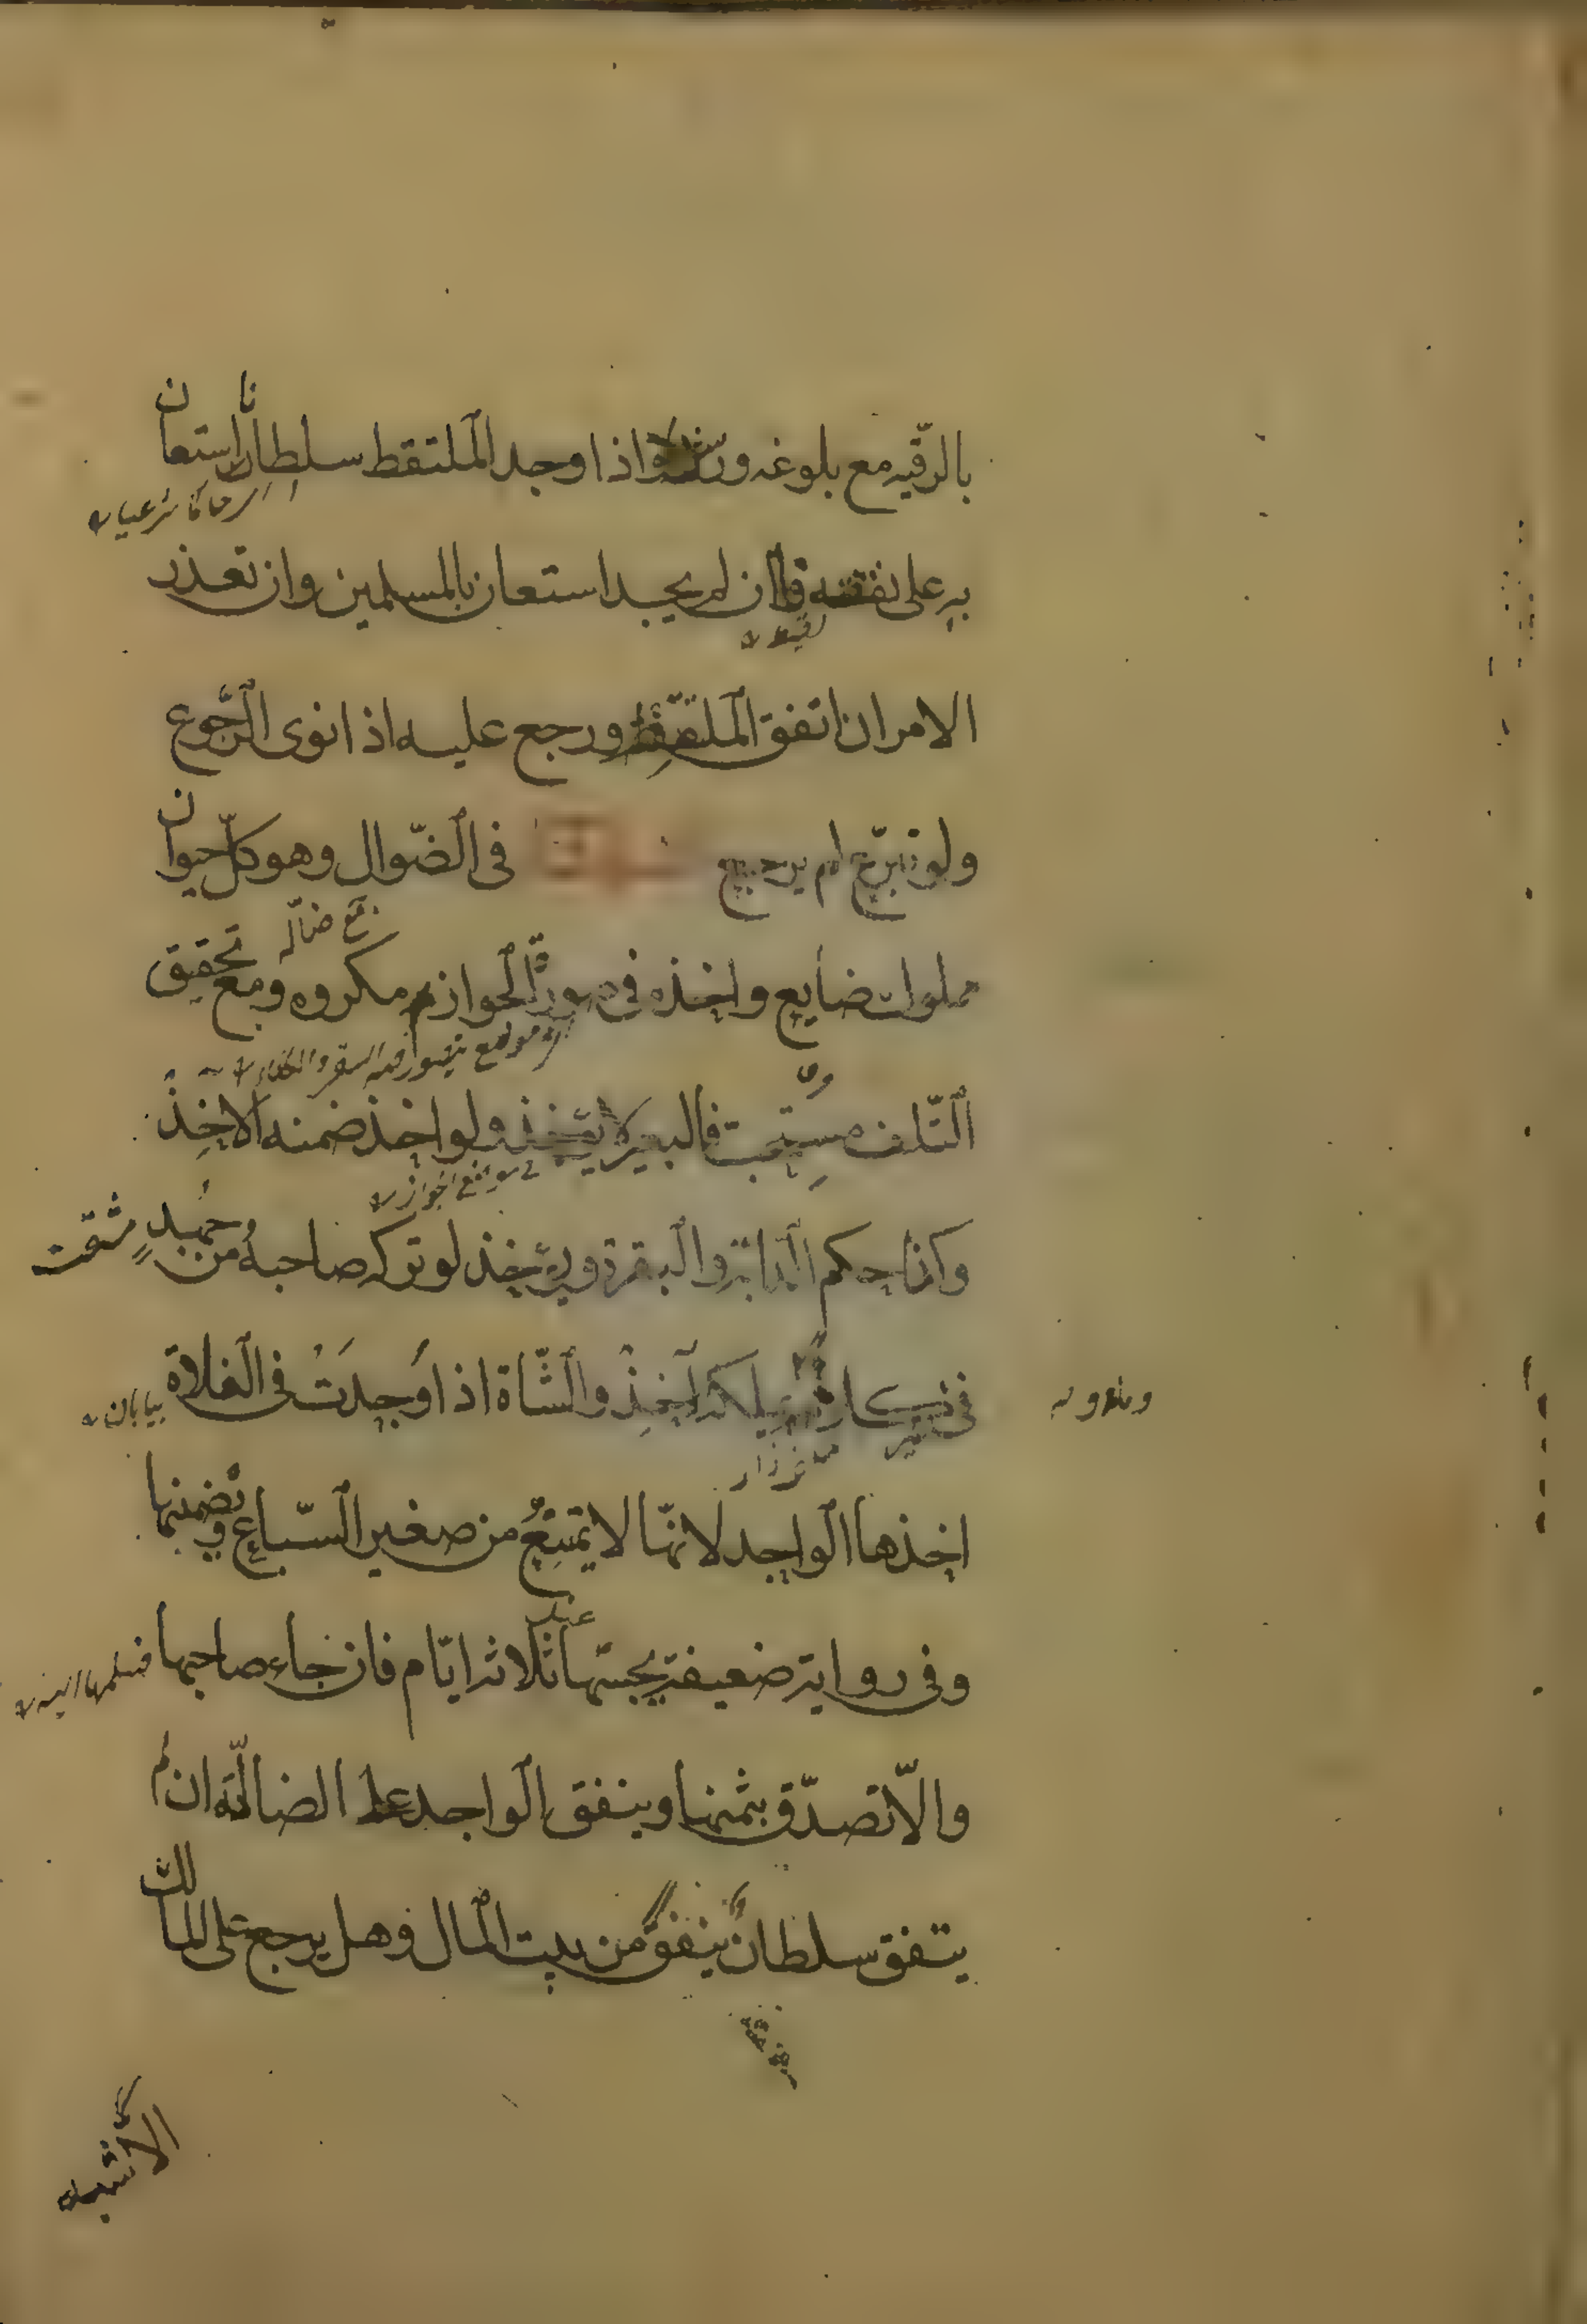 بالرّقيه مع بلوغه ورشده واذا وجد الملتقط سلطانا استعان
به على نفقته فان لم يجد استعان بالمسلمين وان تعذر
الامران انفق الملتقط ورجع عليه اذا نوى الرّجوع
ولو تبرّع لم يرجع فى الضّوال وهو كلّ حيوان
جمع ضالّه
مملوك ضايع واخذه فى صورة الجواز مكروه ومع تحقيق
التّلف مستحبّ فالبعير لا يؤخذ ولو اخذ ضمنه الاخِذُ
فى مواضع الجواز
وكذا حكم الدابة والبقرة ويؤخذ لو تركه صاحبه من جهدٍ مشقت
فى غير كلاء ويملكه آخِذُ والشّاة اذا وُجِدَتْ فى الفلاة بيابان
اخذها الواجد لانّها لا تمتنعُ من صغير السّباع و يضمنها
وفى رواية ضعيفة يحبسها عنده ثلاثة ايّام فان جاء صاحبها فيسلمها اليه
والاّ تصدّق بثمنها وينفق الواجد على الضالّة ان لم
يتفق سلطان ينفق من بيت المال وهل يرجع على المالك
الاشبه